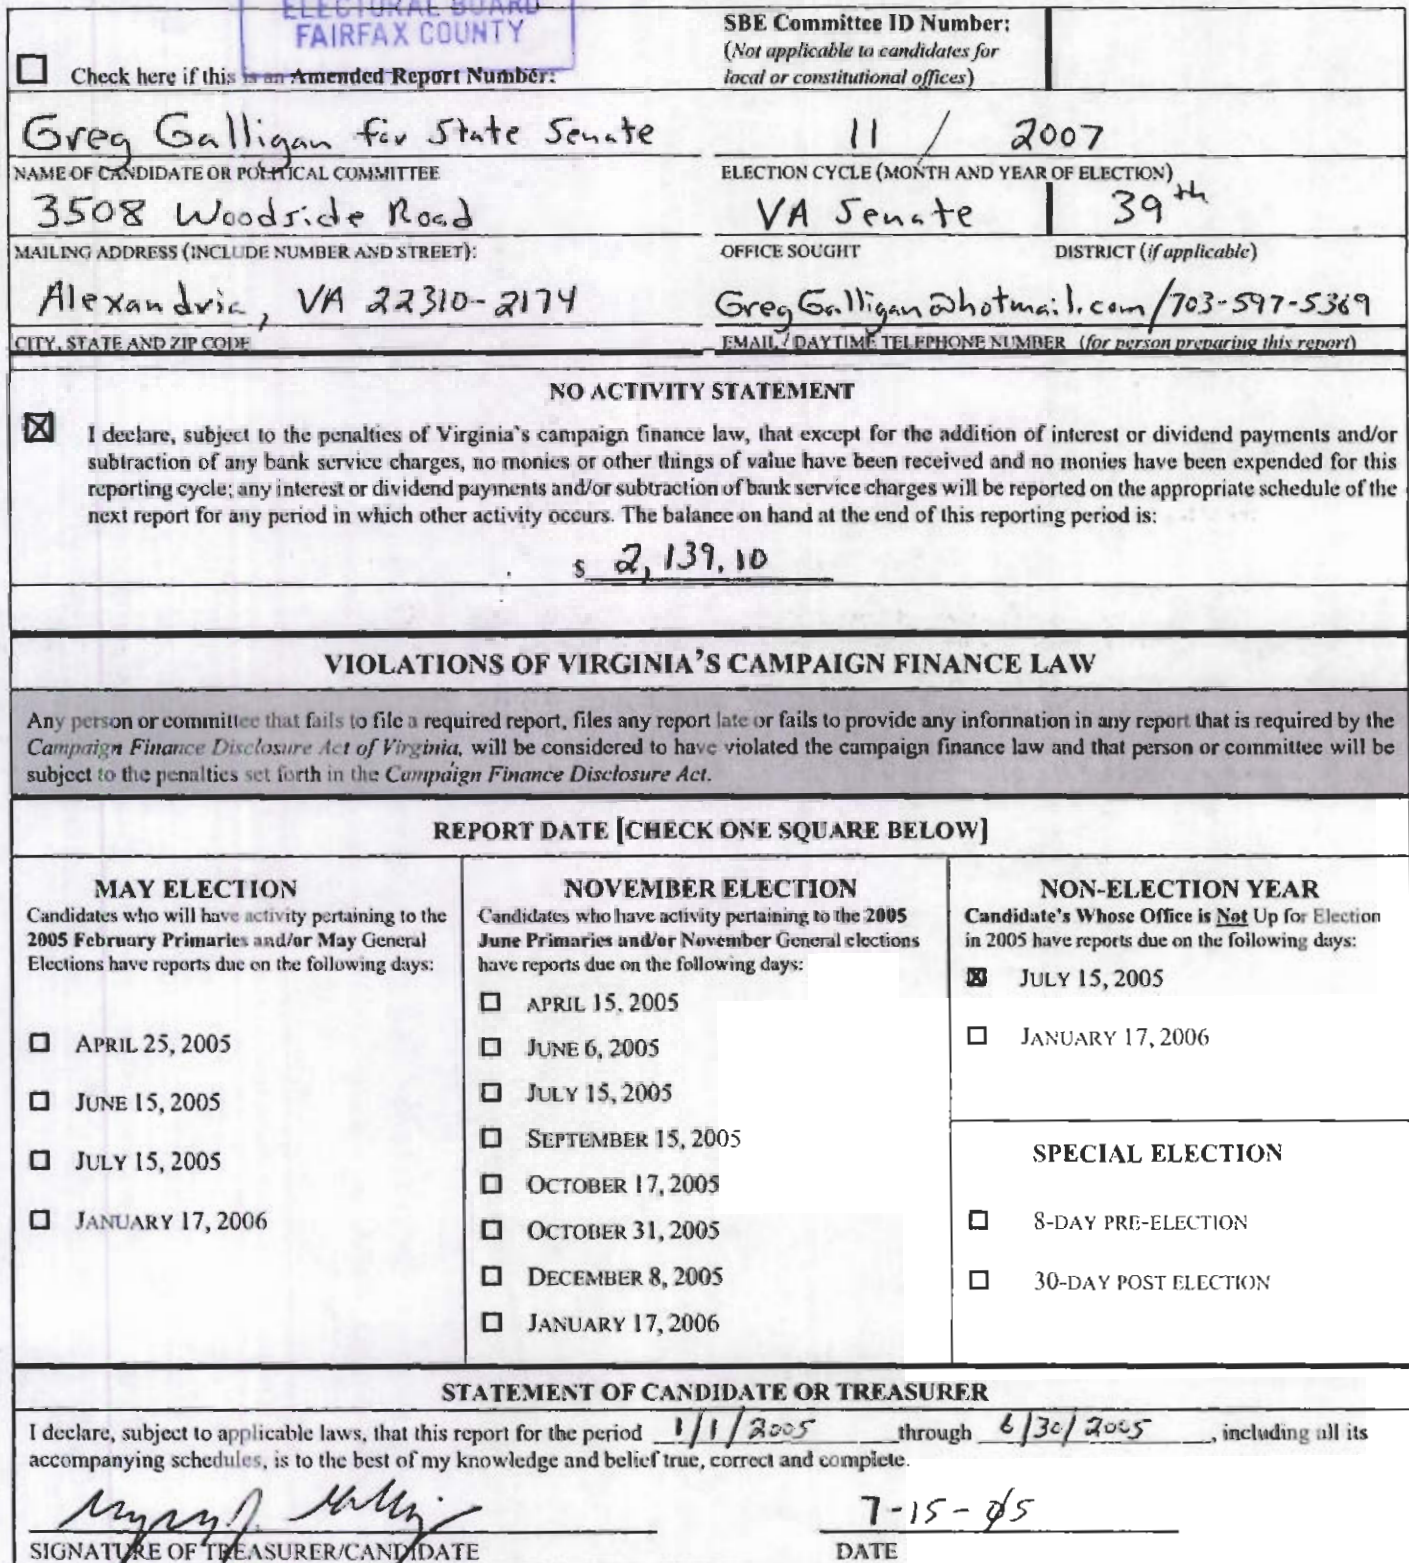 ELECTORAL BOARD
FAIRFAX COUNTY
Check here if this is an Amended Report Number:
SBE Committee ID Number:
(Not applicable to candidates for
local or constitutional offices)
Greg Galligan for State Senate
11 / 2007
NAME OF CANDIDATE OR POLITICAL COMMITTEE
ELECTION CYCLE (MONTH AND YEAR OF ELECTION)
3508 Woodside Road
VA Senate 39th
MAILING ADDRESS (INCLUDE NUMBER AND STREET):
OFFICE SOUGHT
DISTRICT (if applicable)
Alexandria, VA 22310-2174
GregGalligan@hotmail.com/703-597-5369
CITY, STATE AND ZIP CODE
EMAIL / DAYTIME TELEPHONE NUMBER (for person preparing this report)
NO ACTIVITY STATEMENT
I declare, subject to the penalties of Virginia's campaign finance law, that except for the addition of interest or dividend payments and/or
subtraction of any bank service charges, no monies or other things of value have been received and no monies have been expended for this
reporting cycle; any interest or dividend payments and/or subtraction of bank service charges will be reported on the appropriate schedule of the
next report for any period in which other activity occurs. The balance on hand at the end of this reporting period is:
$ 2,139.10
VIOLATIONS OF VIRGINIA'S CAMPAIGN FINANCE LAW
Any person or committee that fails to file a required report, files any report late or fails to provide any information in any report that is required by the
Campaign Finance Disclosure Act of Virginia, will be considered to have violated the campaign finance law and that person or committee will be
subject to the penalties set forth in the Campaign Finance Disclosure Act.
REPORT DATE [CHECK ONE SQUARE BELOW]
MAY ELECTION
Candidates who will have activity pertaining to the
2005 February Primaries and/or May General
Elections have reports due on the following days:
APRIL 25, 2005
JUNE 15, 2005
JULY 15, 2005
JANUARY 17, 2006
NOVEMBER ELECTION
Candidates who have activity pertaining to the 2005
June Primaries and/or November General elections
have reports due on the following days:
APRIL 15, 2005
JUNE 6, 2005
JULY 15, 2005
SEPTEMBER 15, 2005
OCTOBER 17, 2005
OCTOBER 31, 2005
DECEMBER 8, 2005
JANUARY 17, 2006
NON-ELECTION YEAR
Candidate's Whose Office is Not Up for Election
in 2005 have reports due on the following days:
JULY 15, 2005
JANUARY 17, 2006
SPECIAL ELECTION
8-DAY PRE-ELECTION
30-DAY POST ELECTION
STATEMENT OF CANDIDATE OR TREASURER
I declare, subject to applicable laws, that this report for the period 1/1/2005 through 6/30/2005, including all its
accompanying schedules, is to the best of my knowledge and belief true, correct and complete.
7-15-05
SIGNATURE OF TREASURER/CANDIDATE
DATE